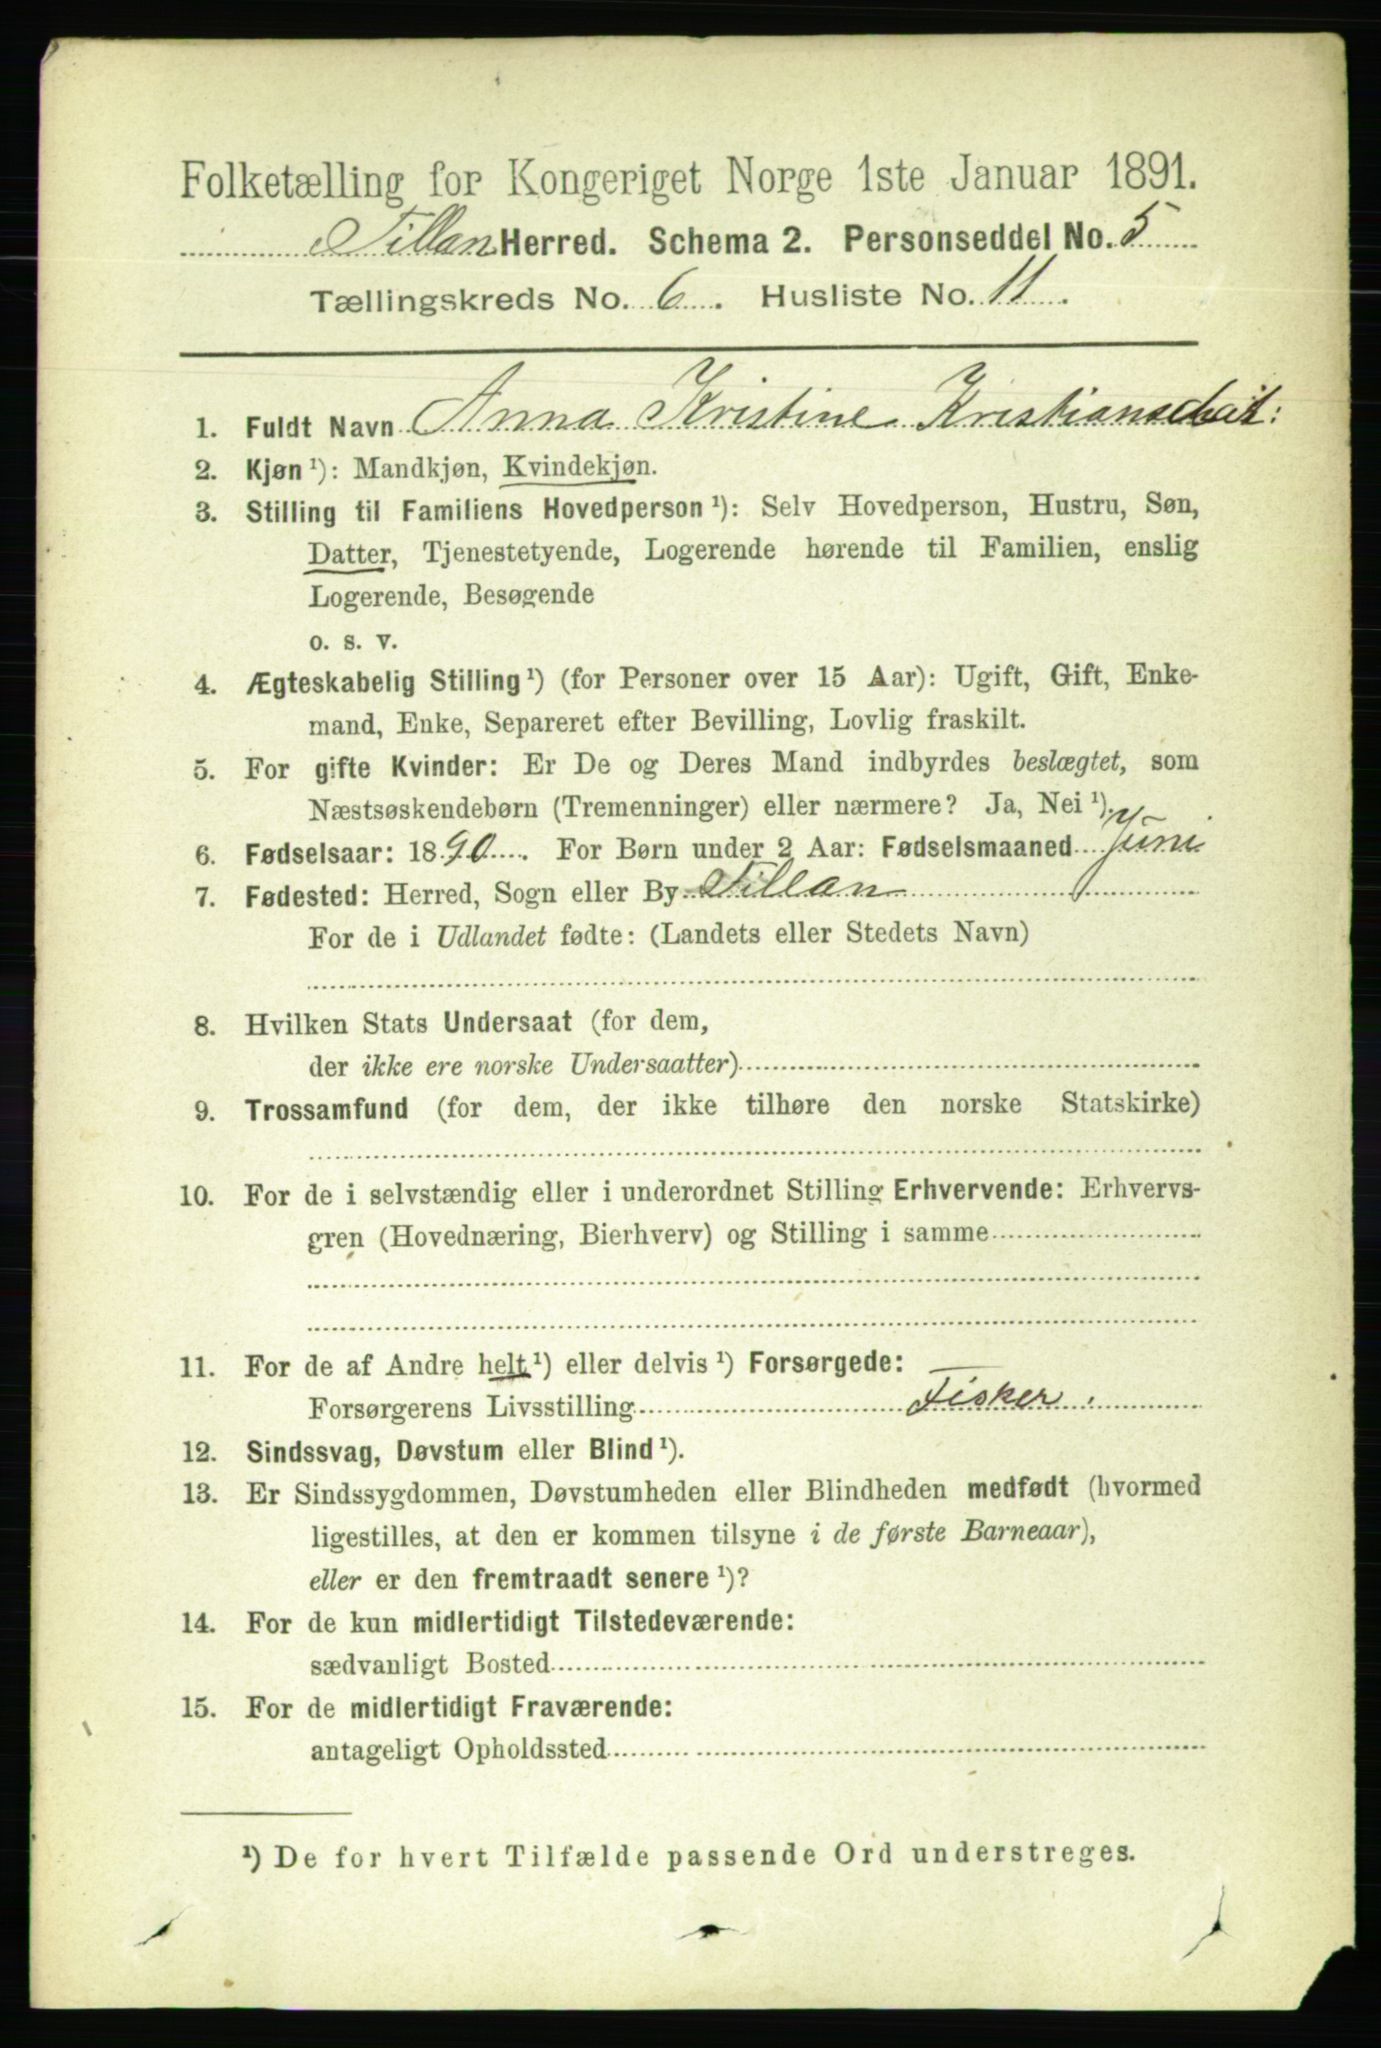 Folketælling for Kongeriget Norge 1ste Januar 1891.
Fillan Herred. Schema 2. Personseddel No. 5
Tællingskreds No. 6. Husliste No. 11.
1. Fuldt Navn Anna Kristine Kristiansdatt:
2. Kjøn ¹): Mandkjøn, Kvindekjøn.
3. Stilling til Familiens Hovedperson ¹): Selv Hovedperson, Hustru, Søn,
Datter, Tjenestetyende, Logerende hørende til Familien, enslig
Logerende, Besøgende
o. s. v.
4. Ægteskabelig Stilling ¹) (for Personer over 15 Aar): Ugift, Gift, Enke-
mand, Enke, Separeret efter Bevilling, Lovlig fraskilt.
5. For gifte Kvinder: Er De og Deres Mand indbyrdes beslægtet, som
Næstsøskendebørn (Tremenninger) eller nærmere? Ja, Nei ¹).
6. Fødselsaar: 1890. For Børn under 2 Aar: Fødselsmaaned Juni
7. Fødested: Herred, Sogn eller By Fillan
For de i Udlandet fødte: (Landets eller Stedets Navn)
8. Hvilken Stats Undersaat (for dem,
der ikke ere norske Undersaatter)
9. Trossamfund (for dem, der ikke tilhøre den norske Statskirke)
10. For de i selvstændig eller i underordnet Stilling Erhvervende: Erhvervs-
gren (Hovednæring, Bierhverv) og Stilling i samme
11. For de af Andre helt ¹) eller delvis ¹) Forsørgede:
Forsørgerens Livsstilling Fisker.
12. Sindssvag, Døvstum eller Blind ¹).
13. Er Sindssygdommen, Døvstumheden eller Blindheden medfødt (hvormed
ligestilles, at den er kommen tilsyne i de første Barneaar),
eller er den fremtraadt senere ¹)?
14. For de kun midlertidigt Tilstedeværende:
sædvanligt Bosted
15. For de midlertidigt Fraværende:
antageligt Opholdssted
¹) De for hvert Tilfælde passende Ord understreges.